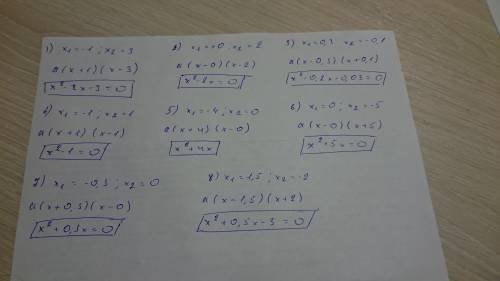 1) x1=-1 ; x2=3
a(x+1)(x-3)
x²-2x-3=0
2) x1=0 ; x2=2
a(x-0)(x-2)
x²-2x=0
3) x1=0,3 x2=-0,1
a(x-0,3)(x+0,1)
x²-0,2x-0,03=0
4) x1=-1 ; x2=1
a(x+1)(x-1)
x²-1=0
5) x1=-4 ; x2=0
a(x+4)(x-0)
x²+4x
6) x1=0 ; x2=-5
a(x-0)(x+5)
x²+5x=0
7) x1=-0,3 ; x2=0
a(x+0,3)(x-0)
x²+0,3x=0
8) x1=1,5 ; x2=-2
a(x-1,5)(x+2)
x²+0,5x-3=0